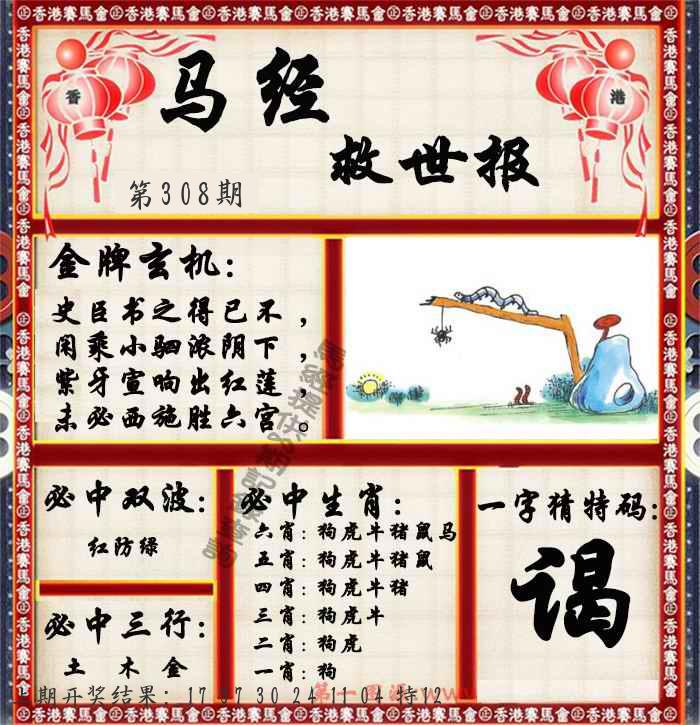 香港賽馬會
香 港
马经
救世报
第308期
金牌玄机:
史臣书之得已不，
闲乘小驷浓阴下，
紫牙宣响出红莲，
未必西施胜六宫。
必中双波:
红防绿
必中三行:
土 木 金
必中生肖:
六肖:狗虎牛猪鼠马
五肖:狗虎牛猪鼠
四肖:狗虎牛猪
三肖:狗虎牛
二肖:狗虎
一肖:狗
一字猜特码:
谒
期开奖结果: 17 37 30 24 11 04 特12
第一图源